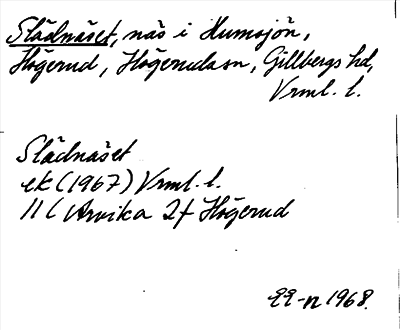 Slädnäset, näs i Humsjön,
Högerud, Högerudssn, Gillbergs hd,
Vrml. l.
Slädnäset
ek (1967) Vrml. l.
11 C Arvika 2f Högerud
1968.